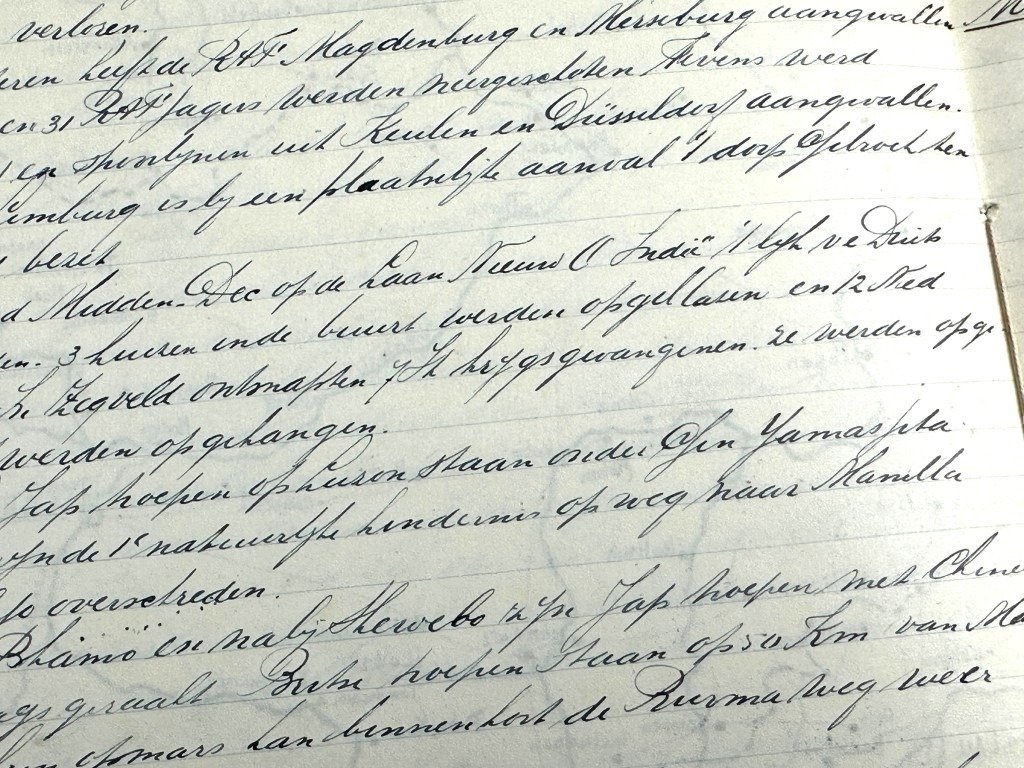 verlozen.
heeft de RAF Magdenburg en Merseburg aangevallen
en 31 RAF Jagers werden neergeschoten Tevens werd
en spoorlijnen uit Keulen en Düsseldorf aangevallen.
Limburg is bij een plaatselijke aanval 1 dorp Gebroekhen
bezit
d Midden Dec op de Laan Nieuw O Indië 1 lijk v e Duits
en. 3 huizen in de buurt werden opgeblazen en 12 Ned
Zegveld ontsnapten krijgsgevangenen. ze werden opge-
werden opgehangen.
Jap troepen op Luzon staan onder Gen Yamashita
de 1e natuurlijke hindernis op weg naar Manilla
overschreden.
Bhamo en nabij Shewebo zijn Jap troepen met Chine
slaags geraakt Britse troepen staan op 50 Km van Ma
opmars kan binnenkort de Burma weg weer